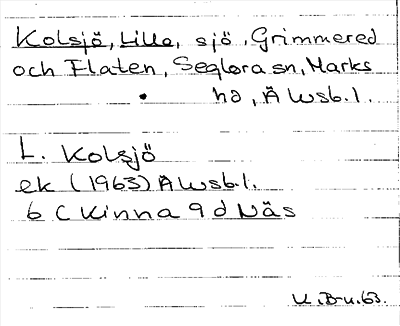 Kolsjö, Lilla, sjö, Grimmered
och Flaten, Seglora sn, Marks
hd, Älvsb.l.
L. Kolsjö
ek (1963) Älvsb.l.
6 C Kinna 9 d Näs
U.Br.u.63.